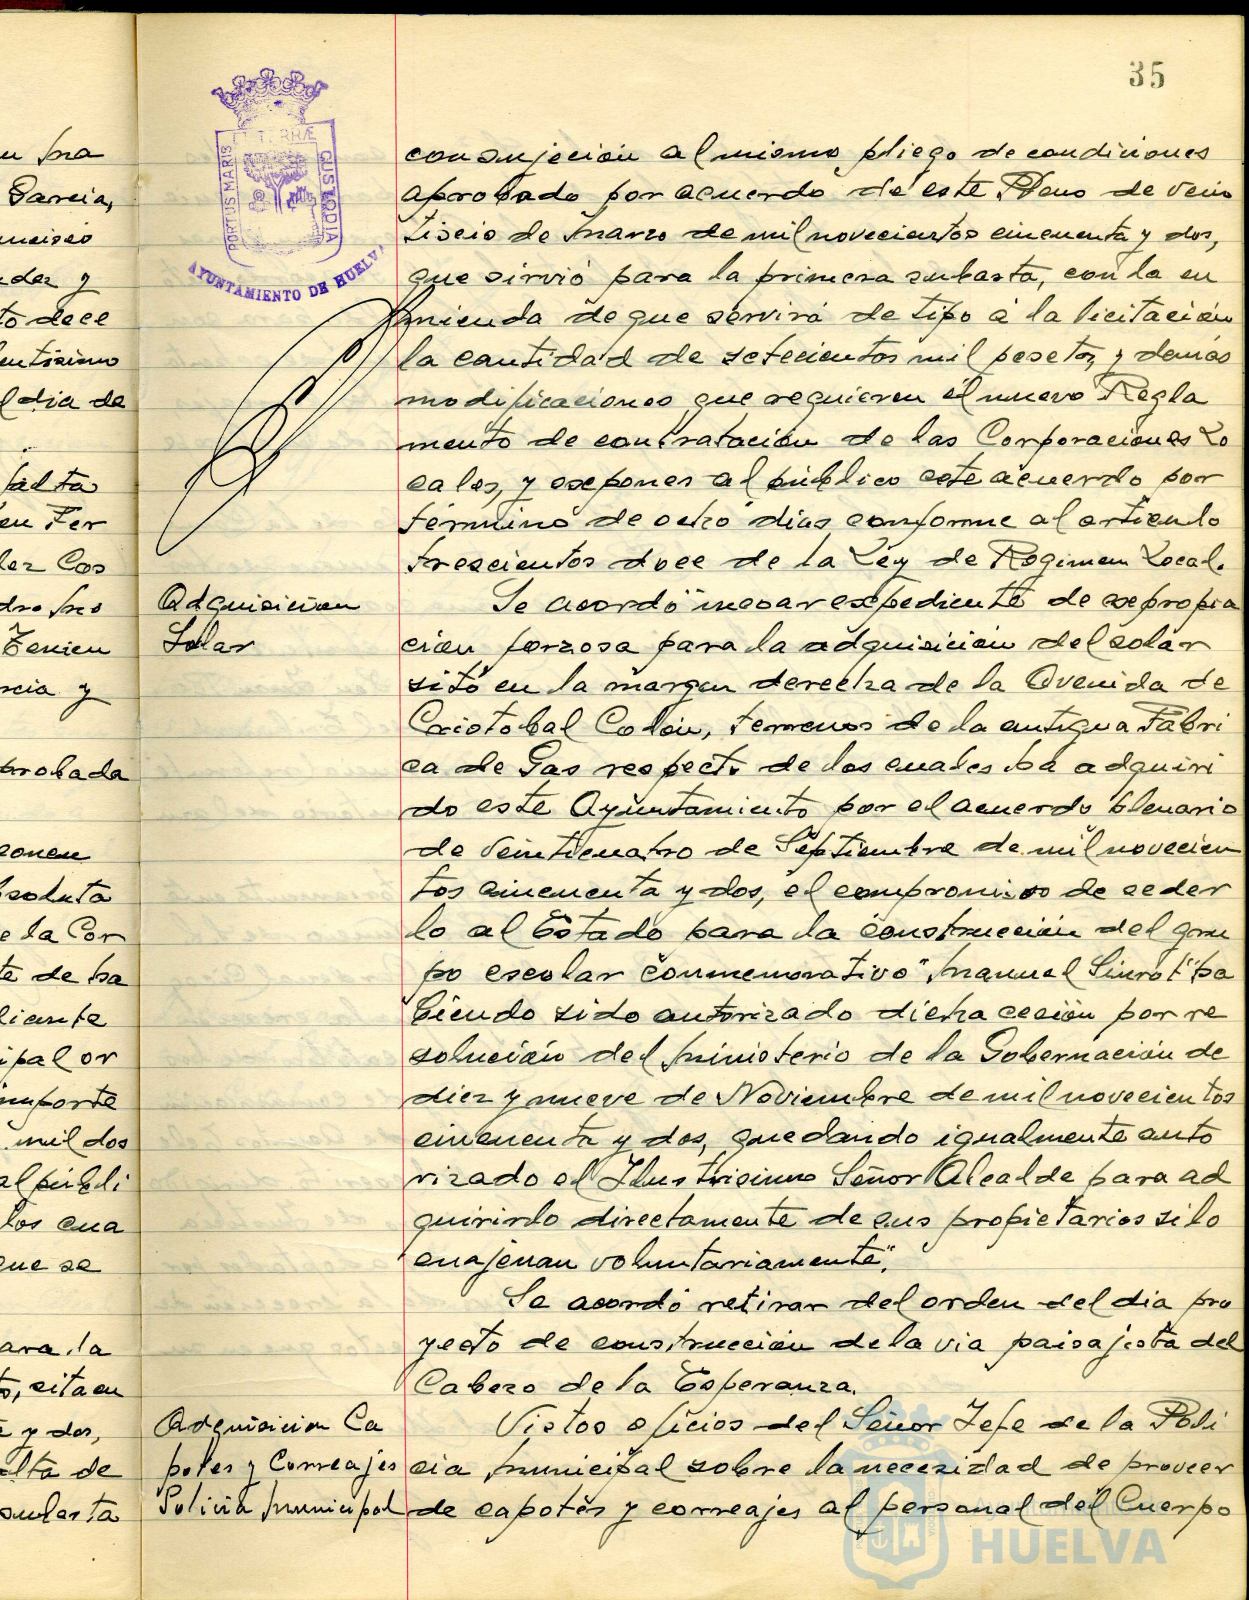 35
PORTUS MARIS
ET TERRÆ
CUSTODIA
AYUNTAMIENTO DE HUELVA
con sujeción al mismo pliego de condiciones
aprobado por acuerdo de este Pleno de vein
tiseis de Marzo de mil novecientos cincuenta y dos,
que sirvió para la primera subasta, con la en
mienda de que servirá de tipo á la licitación
la cantidad de setecientos mil pesetas, y demás
modificaciones que requieren el nuevo Regla
mento de contratación de las Corporaciones Lo
cales, y exponer al público este acuerdo por
término de ocho días conforme al artículo
trescientos doce de la Ley de Régimen Local.
Adquisición
Solar
Se acordó "incoar expediente de expropia
ción forzosa para la adquisición del solar
sito en la margen derecha de la Avenida de
Cristobal Colón, terrenos de la antigua Fábri
ca de Gas respecto de los cuales ha adquiri
do este Ayuntamiento por el acuerdo plenario
de veinticuatro de Septiembre de mil novecien
tos cincuenta y dos, el compromiso de ceder
lo al Estado para la construcción del gru
po escolar conmemorativo "Manuel Siurot" ha
biendo sido autorizado dicha cesión por re
solución del Ministerio de la Gobernación de
diez y nueve de Noviembre de mil novecientos
cincuenta y dos, quedando igualmente auto
rizado el Ilustrisimo Señor Alcalde para ad
quirirlo directamente de sus propietarios si lo
enajenan voluntariamente".
Se acordó retirar del orden del dia pro
yecto de construcción de la via paisajista del
Cabezo de la Esperanza.
Adquisicion Ca
potes y Correajes
Policia Municipal
Vistos oficios del Señor Jefe de la Poli
cia Municipal sobre la necesidad de proveer
de capotes y correajes al personal del Cuerpo
HUELVA
García,
der y
to dece
lentisimo
l dia de
falta
en Fer
lez Cos
Tenien
rcia y
probada
ponen
bsoluta
e la Cor
te de ha
diante
ipal or
importe
mil dos
al públi
los cua
que se
para la
to, sita en
a y dos,
alta de
subasta